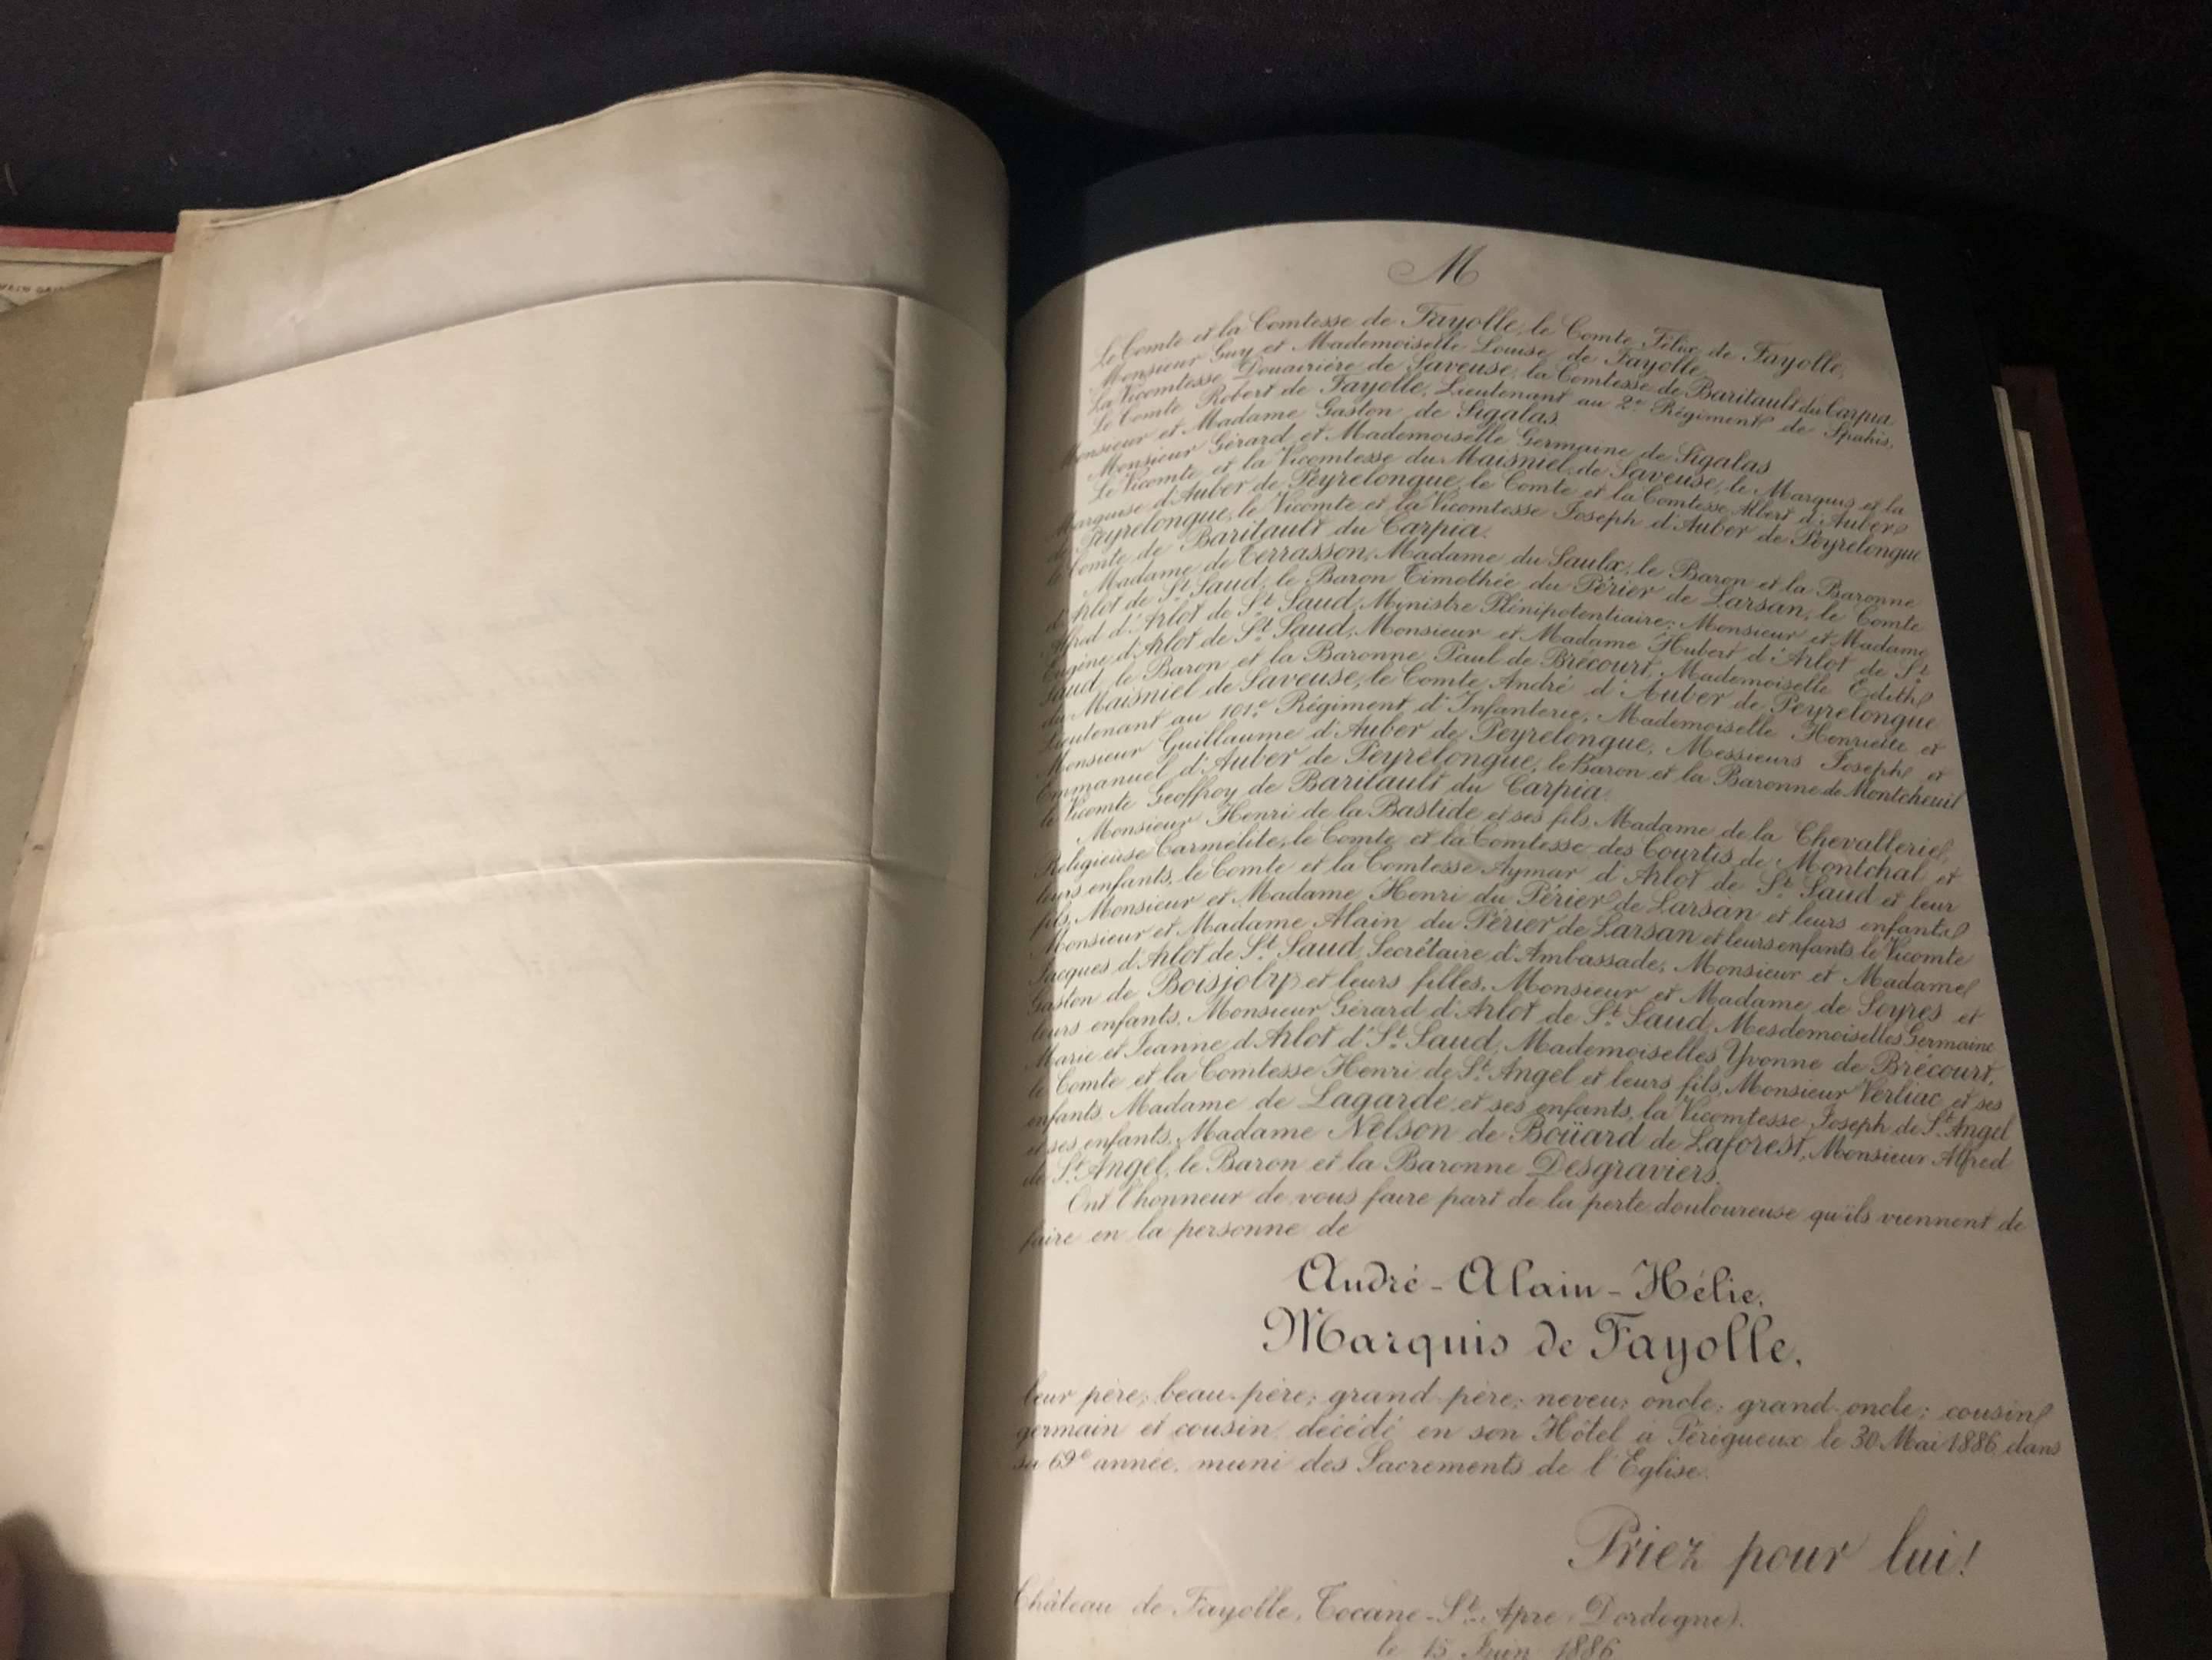 M
Le Comte et la Comtesse de Fayolle, le Comte Félix de Fayolle,
Monsieur Guy et Mademoiselle Louise de Fayolle,
La Vicomtesse Douairière de Saveuse, la Comtesse de Baritault du Carpia
Le Comte Robert de Fayolle, Lieutenant au 2e Régiment de Spahis,
Monsieur et Madame Gaston de Sigalas
Monsieur Gérard et Mademoiselle Germaine de Sigalas
Le Vicomte et la Vicomtesse du Maisniel de Saveuse, le Marquis et la
Marquise d'Auber de Peyrelongue, le Comte et la Comtesse Albert d'Auber
de Peyrelongue, le Vicomte et la Vicomtesse Joseph d'Auber de Peyrelongue
le Comte de Baritault du Carpia.
Madame de Terrasson, Madame du Saulx, le Baron et la Baronne
d'Arlot de St. Saud, le Baron Timothée du Périer de Larsan, le Comte
Alfred d'Arlot de St. Saud, Ministre Plénipotentiaire; Monsieur et Madame
Eugène d'Arlot de St. Saud, Monsieur et Madame Hubert d'Arlot de St.
Saud, le Baron et la Baronne Paul de Brécourt, Mademoiselle Edith
du Maisniel de Saveuse, le Comte André d'Auber de Peyrelongue
Lieutenant au 101e Régiment d'Infanterie, Mademoiselle Henriette et
Monsieur Guillaume d'Auber de Peyrelongue, Messieurs Joseph et
Emmanuel d'Auber de Peyrelongue, le Baron et la Baronne de Montcheuil
le Vicomte Geoffroy de Baritault du Carpia.
Monsieur Henri de la Bastide et ses fils, Madame de la Chevallerie,
Religieuse Carmélite, le Comte et la Comtesse des Courtis de Montchal et
leurs enfants, le Comte et la Comtesse Aymar d'Arlot de St. Saud et leur
fils, Monsieur et Madame Henri du Périer de Larsan et leurs enfants,
Monsieur et Madame Alain du Périer de Larsan et leurs enfants, le Vicomte
Jacques d'Arlot de St. Saud, Secrétaire d'Ambassade, Monsieur et Madame
Gaston de Boisjolly et leurs filles, Monsieur et Madame de Soyres et
leurs enfants, Monsieur Gérard d'Arlot de St. Saud, Mesdemoiselles Germaine
Marie et Jeanne d'Arlot d'St. Saud, Mademoiselles Yvonne de Brécourt,
le Comte et la Comtesse Henri de St. Angel et leurs fils, Monsieur Verliac et ses
enfants, Madame de Lagarde et ses enfants, la Vicomtesse Joseph de St. Angel
et ses enfants, Madame Nelson de Boüard de Laforest, Monsieur Alfred
de St. Angel, le Baron et la Baronne Desgraviers.
Ont l'honneur de vous faire part de la perte douloureuse qu'ils viennent de
faire en la personne de
André-Alain-Hélie,
Marquis de Fayolle,
leur père; beau-père; grand-père; neveu; oncle; grand-oncle; cousin
germain et cousin, décédé en son Hôtel à Périgueux le 30 Mai 1886, dans
sa 69e année, muni des Sacrements de l'Eglise.
Priez pour lui!
Château de Fayolle, Tocane-St. Apre (Dordogne).
le 15 Juin 1886